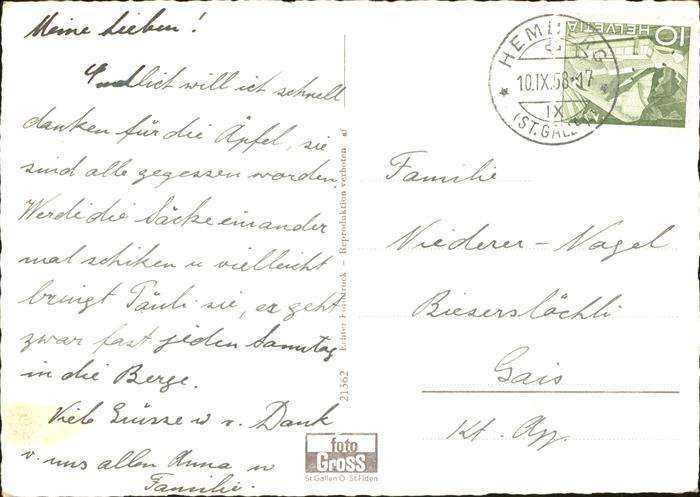 Meine Lieben!
Endlich will ich schnell
danken für die Äpfel, sie
sind alle gegessen worden.
Werde die Säcke einander
mal schiken u vielleicht
bringt Päuli sie, er geht
zwar fast jeden Samstag
in die Berge.
Viele Grüsse u v. Dank
v. uns allen Anna u
Familie.
21362 Echter Fotodruck — Reproduktion verboten
foto
Gross
St. Gallen O St. Fiden
HEMBERG
10.IX.58-17
IX
(ST. GALLEN)
10 HELVETIA
Familie
Niederer-Nagel
Gais
Kt. App.